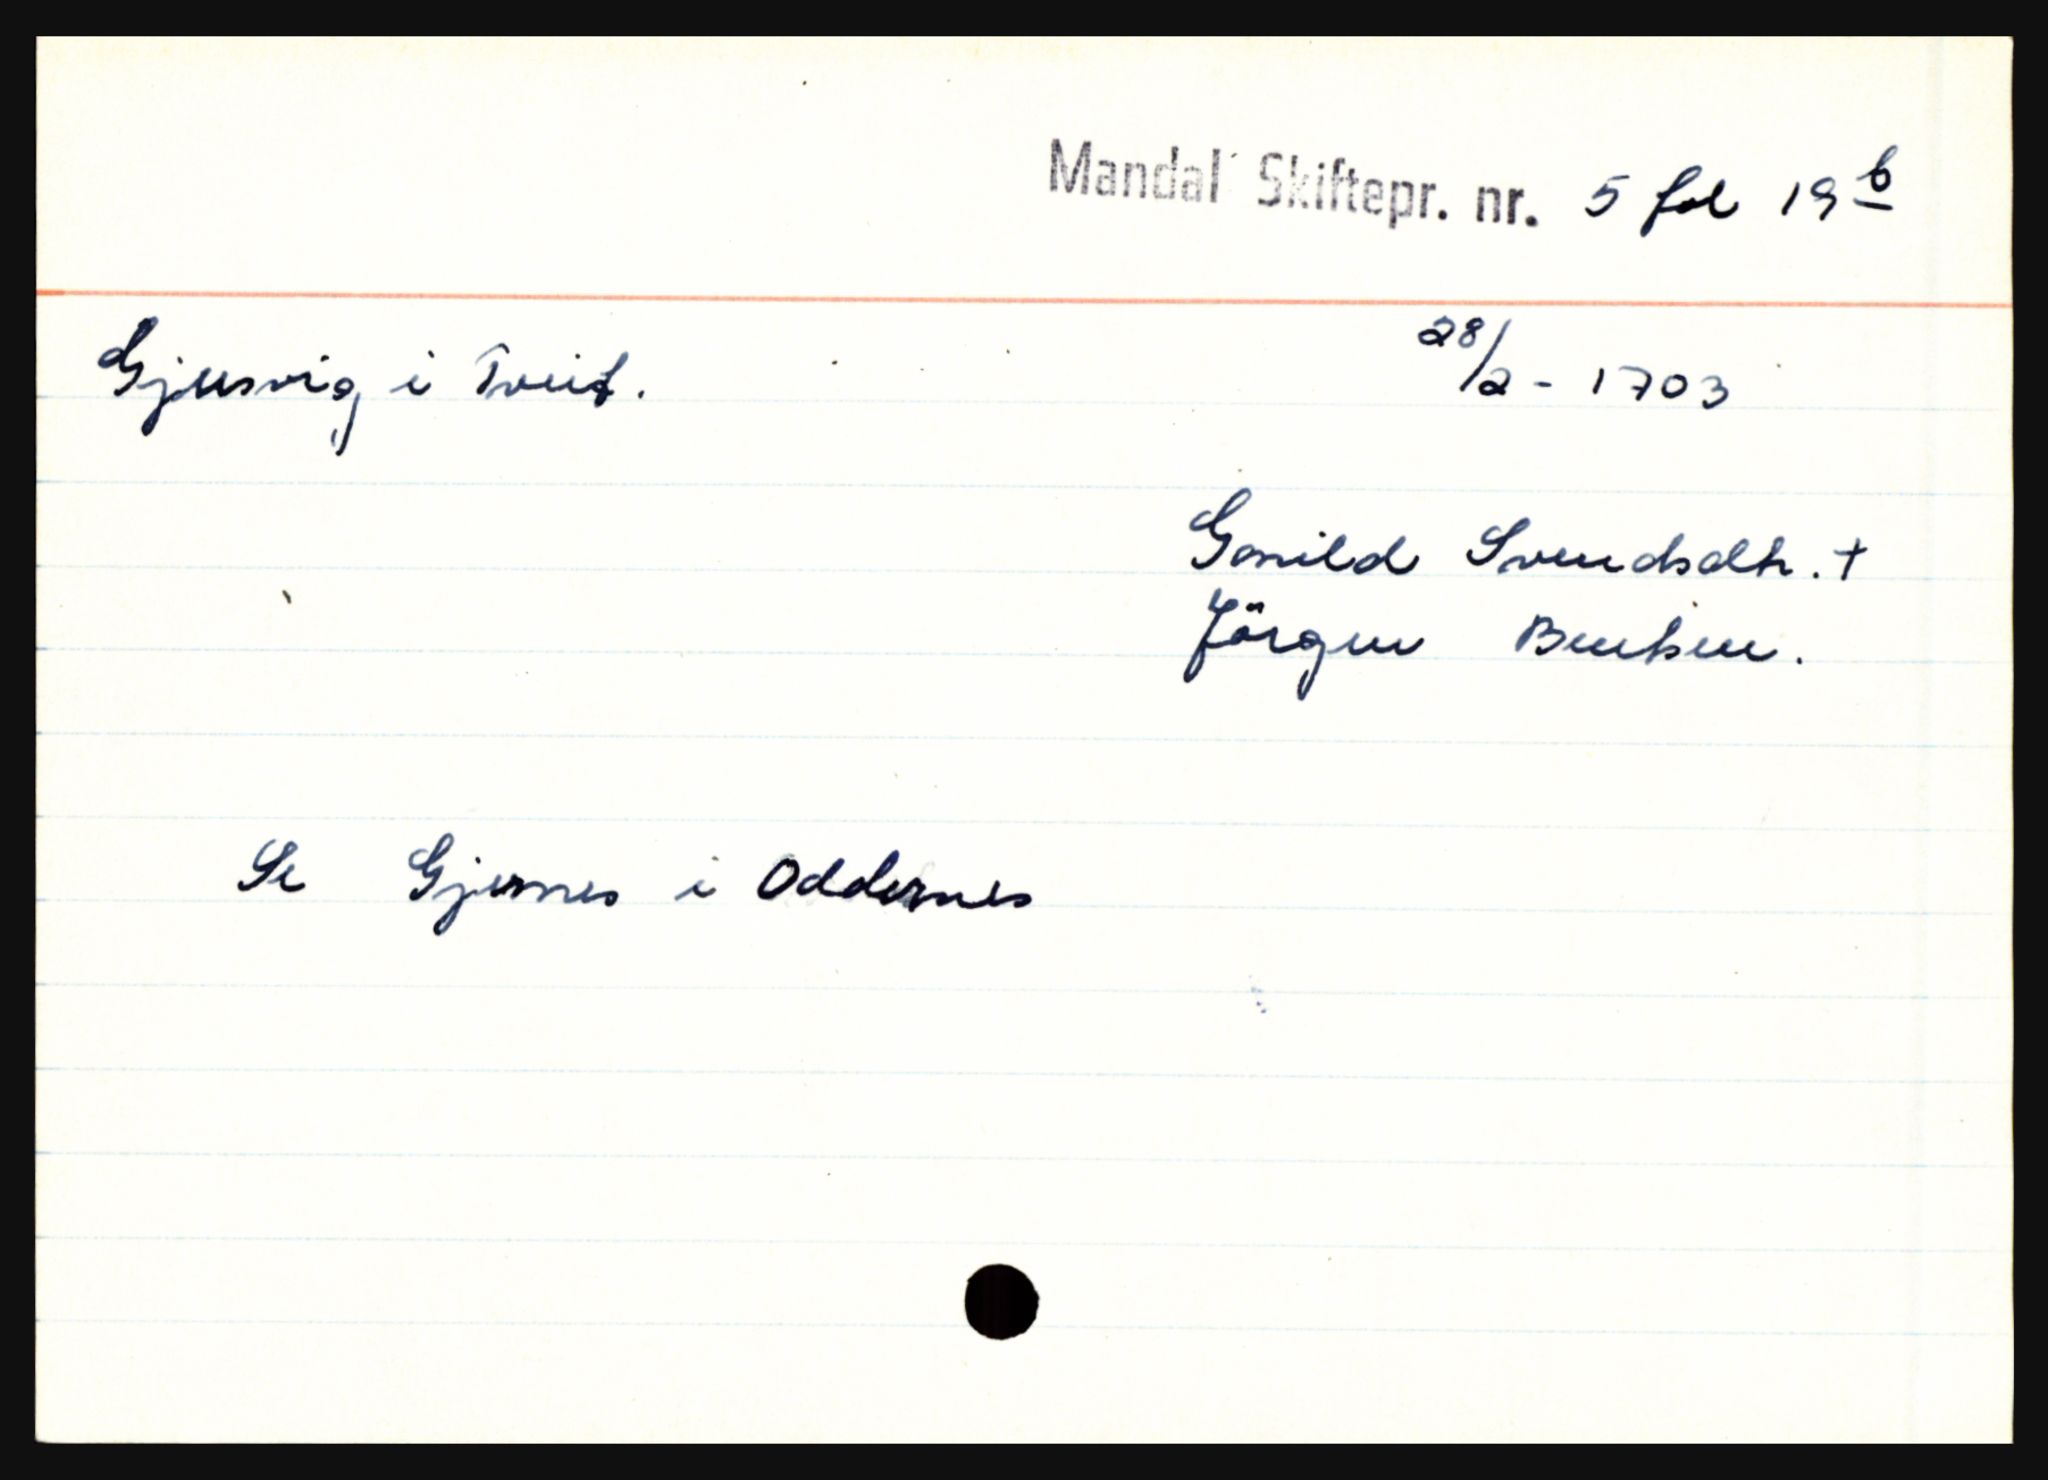 Mandal Skiftepr. nr. 5 fol 19 b
Gjusvig i Tveit. 28/2 - 1703
Gonild Svendsdtr. +
Jörgen Bentsen.
Se Gjernes i Oddernes